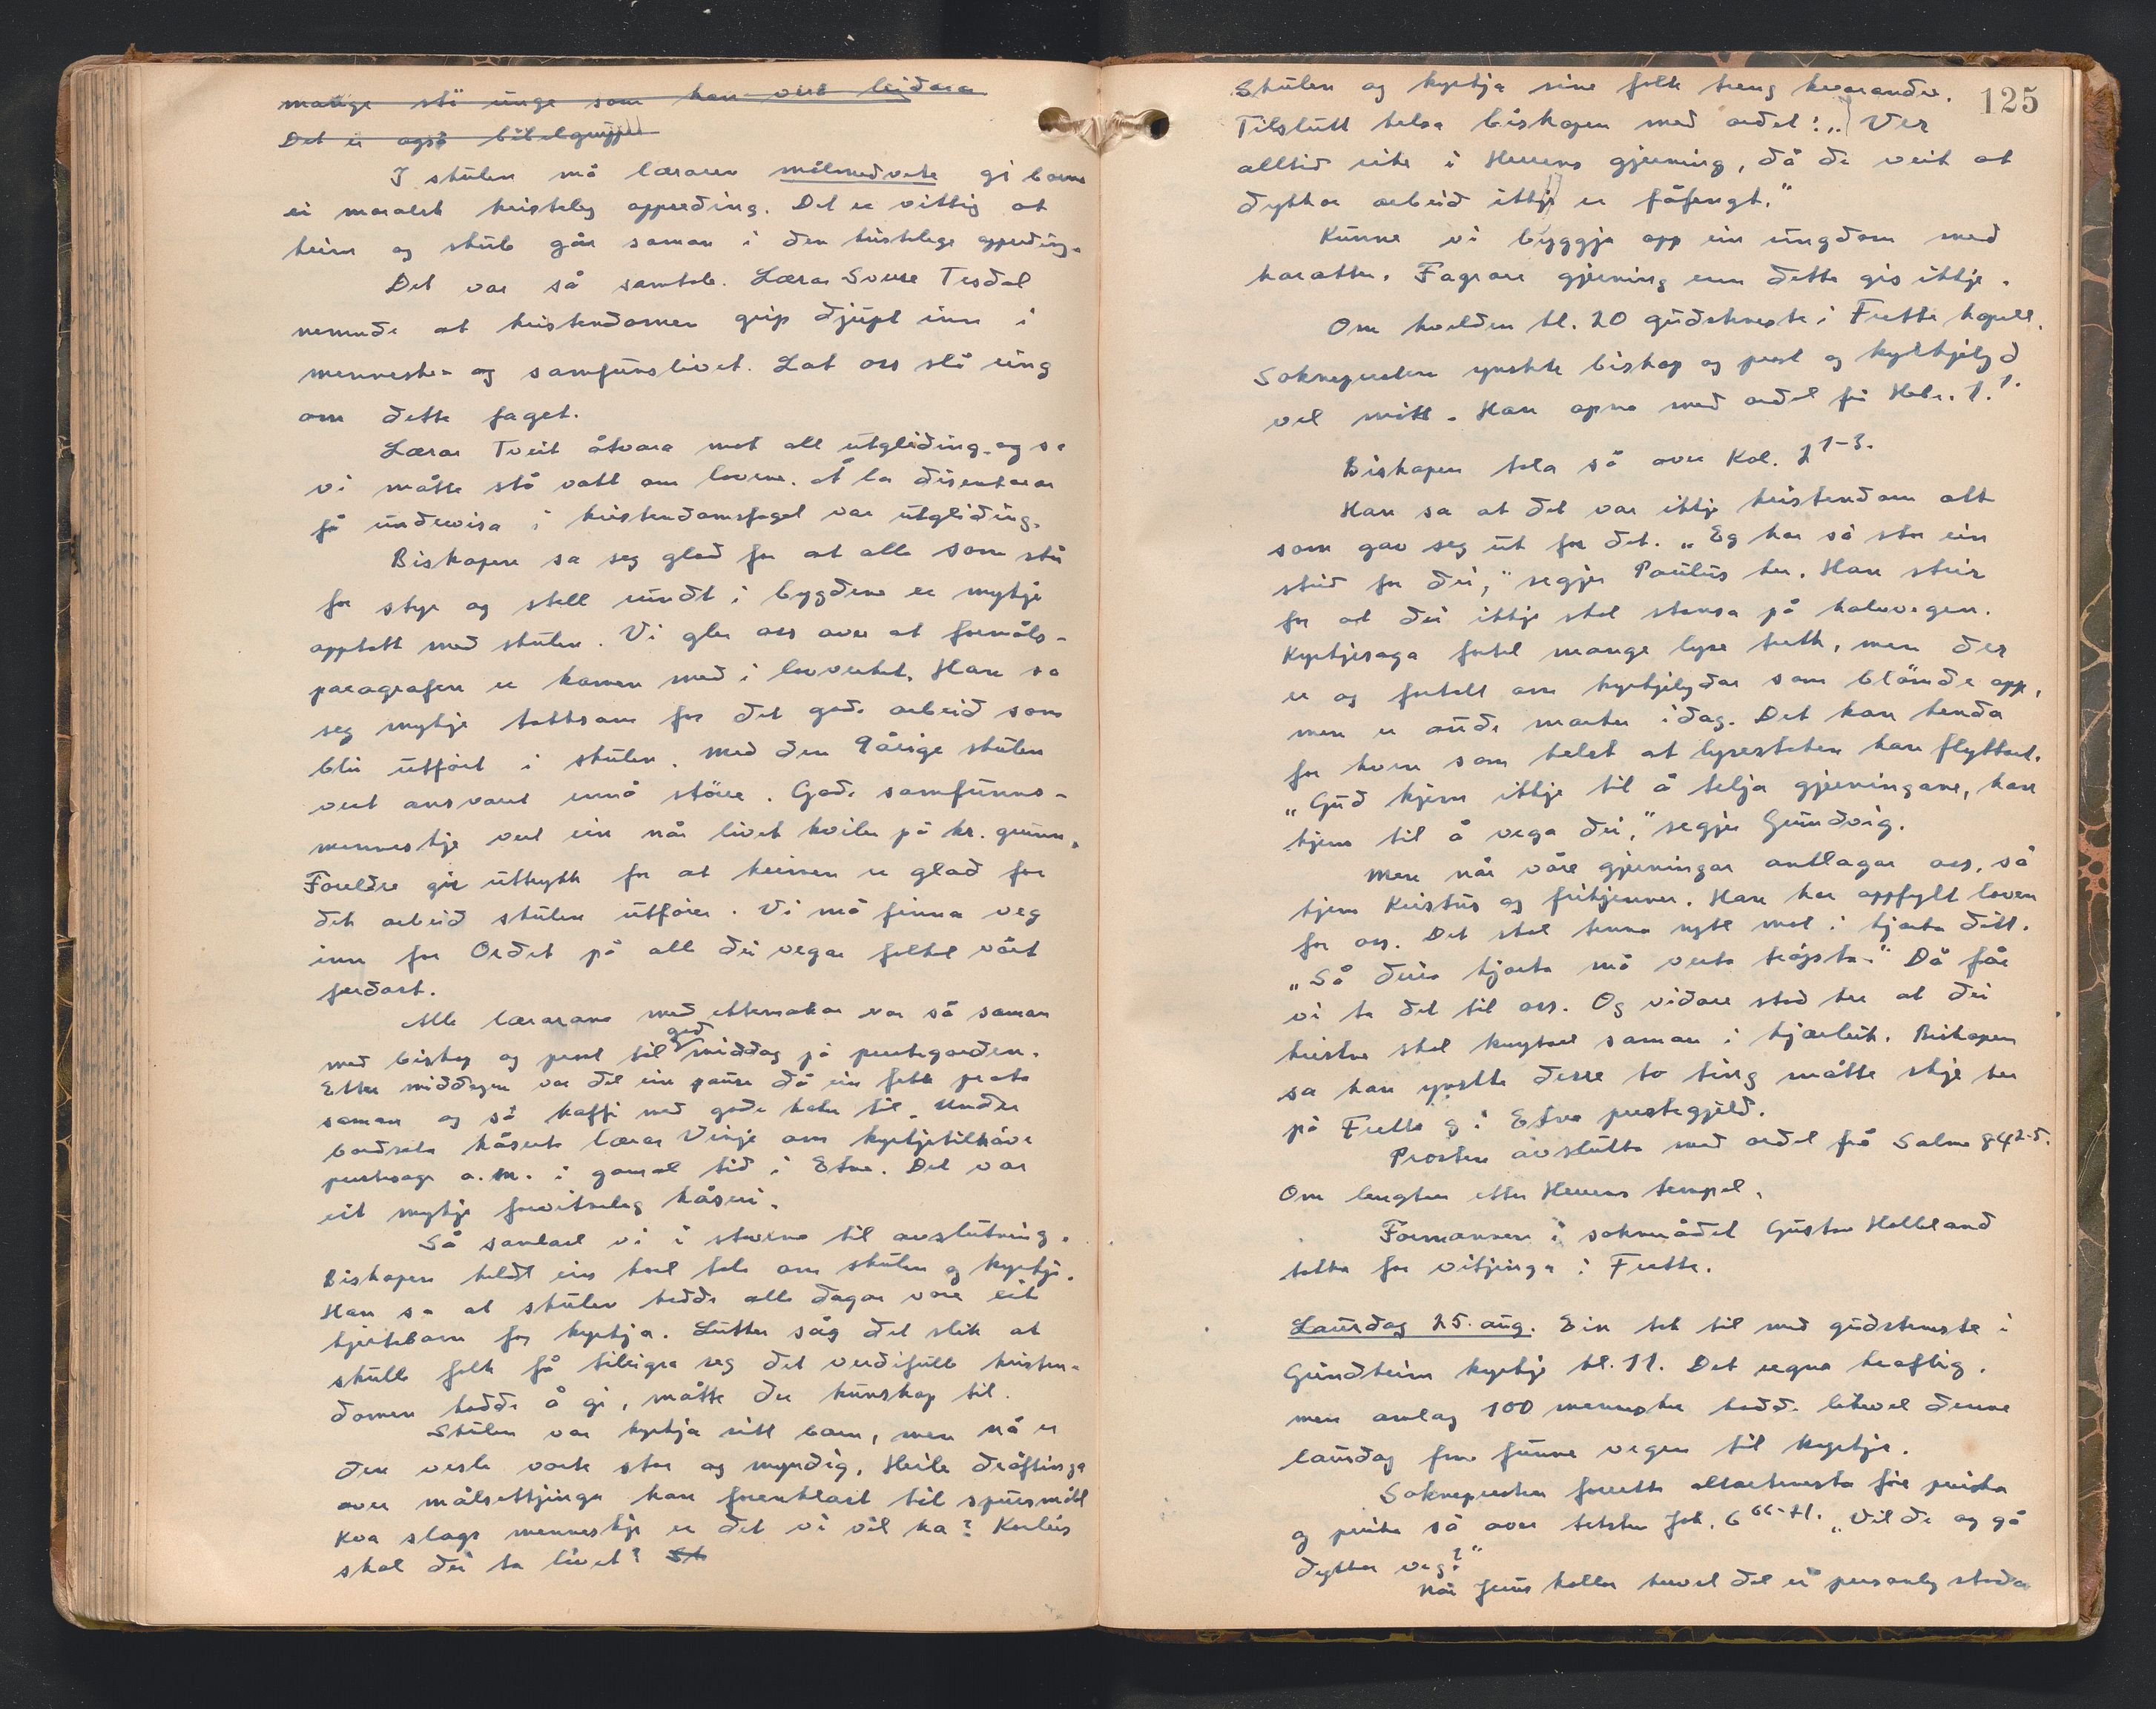 mange slö unge som kan verd leiðara
Det er også bibelgruppe
I skulen må læraren målmeðvete gi borna
ei moralsk kristeleg oppseðing. Det er viktig at
heim og skule går saman i den kristelege oppseðing.
Det var så samtale. Lærar Sverre Tesdal
nemnde at kristendomen grip djupt inn i
menneske- og samfunslivet. Lat oss slå ring
om dette faget.
Lærar Tveit åtvara mot all utgliding, og sa
vi måtte stå vakt om lovene. Å la disentarar
få undervisa i kristendomsfaget var utgliding.
Biskopen sa seg glad for at alle som står
for styr og stell rundt i bygdene er mykje
opptatt med skulen. Vi gler oss over at formåls-
paragrafen er komen med i lovverket. Han sa
seg mykje takksam for det gode arbeid som
blir utført i skulen. Med den 9årige skulen
vert ansvaret ennå större. Gode samfunns-
menneskje vert ein når livet kviler på kr. grunn.
Foreldre gir uttrykk for at heimen er glad for
det arbeid skulen utfører. Vi må finna veg
inn for Ordet på alle dei vegar folket vårt
ferdast.
Alle lærarane med ektemakar var så saman
med biskop og prost til god middag på prestegarden.
Etter middagen var det ein pause då ein fekk prata
saman og så kaffi med gode kaker til. Under
bordseta kåserte lærar Vinje om kyrkjetilhøve
prestesoge o.m. i gamal tid i Etne. Det var
eit mykje forvitneleg kåseri.
Så samlast vi i stovene til avslutning.
Biskopen heldt ein kort tale om skulen og kyrkja.
Han sa at skulen hadde alle dagar vore eit
kjæleborn for kyrkja. Luther såg det slik at
skulle folk få tileigna seg det verdifulle kristen-
domen hadde å gi, måtte der kunskap til.
Skulen var kyrkja sitt barn, men nå er
den vesle vorte stor og myndig. Heile dröftinga
over målsettjinga kan forenklast til spursmålet
Kva slags menneskje er det vi vil ha? Korleis
skal dei ta livet? Sk
125
Skulen og kyrkja sine folk treng kvarandre.
Tilslutt helsa biskopen med ordet: "Ver
alltid rike i Herrens gjerning, då de veit at
dykkar arbeid ikkje er fåfengt."
Kunne vi byggja opp ein ungdom med
karakter. Fagrare gjerning enn dette gis ikkje.
Om kvelden kl. 20 gudsteneste i Frette kapell.
Soknepresten ynskte biskop og prost og kyrkjelyd
vel mött. Han opna med ordet frå Hebr. 1.1.
Biskopen tala så over Kol. 2 1-3.
Han sa at det var ikkje kristendom alt
som gav seg ut for det. "Eg har så stor ein
strid for dei," segjer Paulus her. Han strir
for at dei ikkje skal stansa på halvvegen.
Kyrkjesoga fortel mange lyse trekk, men der
er og fortalt om kyrkjelydar som blömde opp,
men er aude marker idag. Det kan henda
for kven som helst at lysestaken kan flyttast.
"Gud kjem ikkje til å telja gjerningane, han
kjem til å vega dei," segjer Grundvig.
Men når våre gjerningar anklagar oss, så
kjem Kristus og frikjenner. Han har oppfylt loven
for oss. Det skal tenna nytt mot i hjarta ditt.
"Så deira hjarto må verta tröysta." Då får
vi ta det til oss. Og vidare stod her at dei
kristne skal knytast saman i kjærleik. Biskopen
sa han ynskte desse to ting måtte skje her
på Frette og i Etne prestegjeld.
Prosten avslutta med ordet frå Salme 84 2-5.
Om lengten etter Herrens tempel.
Formannen i soknerådet Gustav Helleland
takka for vitjinga i Frette.
Laurdag 25. aug. Ein tok til med gudsteneste i
Grindheim kyrkje kl. 11. Det regna kraftig,
men omlag 100 menneske hadde likevel denne
laurdag fm. funne vegen til kyrkja.
Soknepresten forretta altartenesta före preika
og preika så over teksten Joh. 6 66-71. "Vil de og gå
dykkar veg?"
Når Jesus kallar krevst det ei personleg stoda